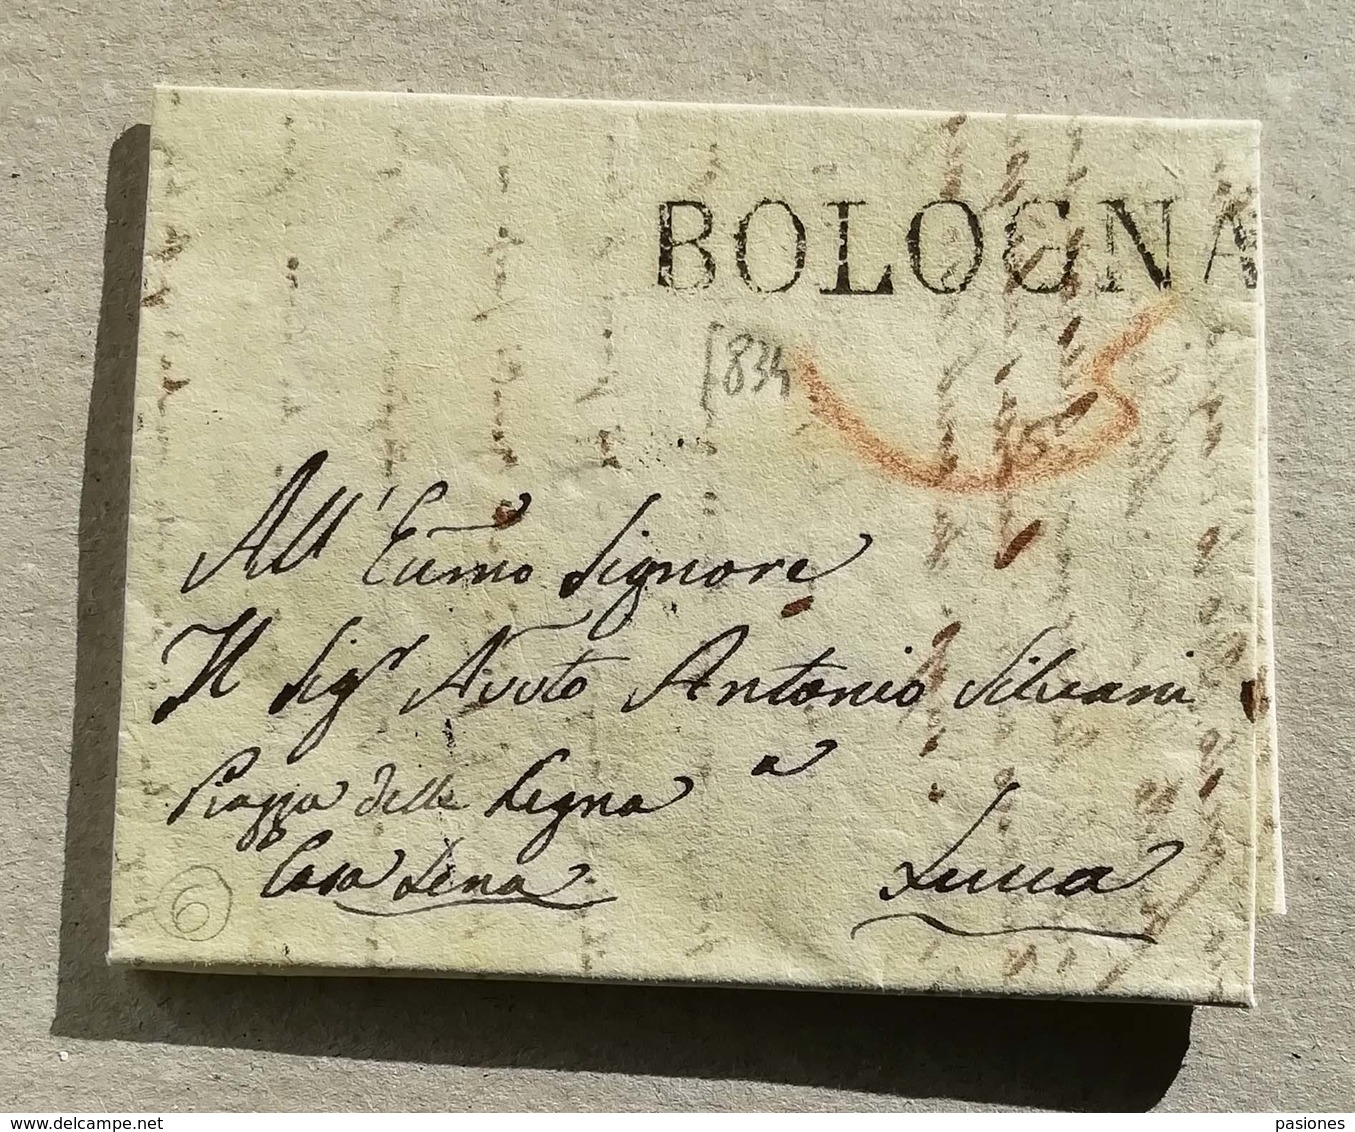 BOLOGNA
1834
All' Ecc͞mo Signore
Il Sigr Avvto Antonio Silvani
Piazza delle Legna a
Casa Lena Lucca
6
www.delcampe.net pasiones